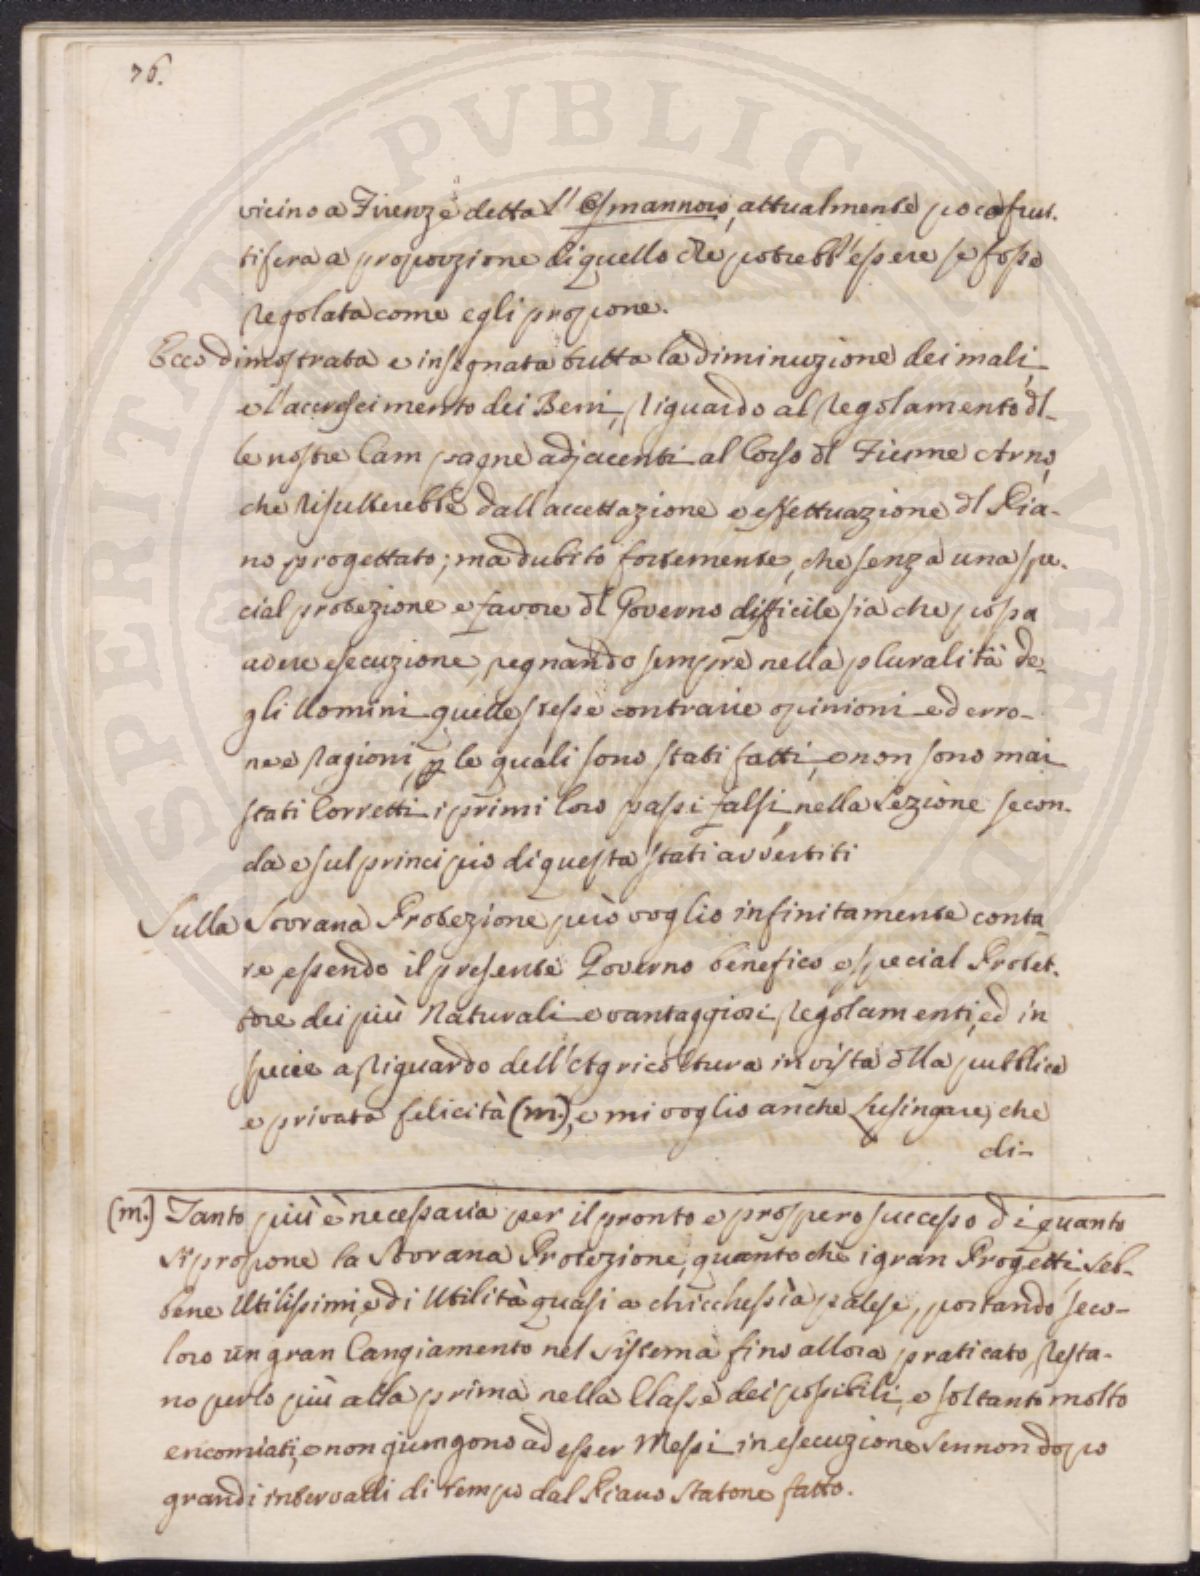 76.
vicino a Firenze detta l'Osmannoro, attualmente poco frut.
tifera a proporzione di quello che potrebb'essere se fosse
Regolata come egli propone.
Ecco dimostrata e insegnata tutta la diminuzione dei mali,
e l'accrescimento dei Beni, Riguardo al Regolamento dl-
le nostre Campagne adjacenti al Corso dl Fiume Arno,
che Risulterebbe dall'accettazione e effettuazione dl Pia-
no progettato; ma dubito fortemente, che senza una spe.
cial protezione e favore dl Governo difficile sia che possa
avere esecuzione, regnando sempre nella pluralità de-
gli Uomini quelle stesse contrarie opinioni ed erro-
nee Ragioni, p le quali sono stati fatti, e non sono mai
stati Corretti i primi loro passi falsi, nella Lezione secon-
da e sul principio di questa stati avvertiti
Sulla Sovrana Protezione però voglio infinitamente conta
re, essendo il presente Governo benefico e special Protet.
tore dei più Naturali e vantaggiosi Regolamenti, ed in
specie a Riguardo dell'Agricoltura in vista dlla pubblica
e privata felicità (m.), e mi voglio anche Lusingare, che
di-
(m.) Tanto più è necessaria per il pronto e prospero successo di quanto
si propone la Sovrana Protezione, quanto che i gran Progetti seb-
bene Utilissimi, e di Utilità quasi a chicchessia palese, portando seco-
loro un gran Cangiamento nel sistema fino allora praticato, Resta-
no per lo più alla prima nella Classe dei possibili, e soltanto molto
encomiati, e non giungono ad esser Messi in esecuzione sennon dopo
grandi intervalli di tempo dal Piano statone fatto.
PROSPERITATI PVBLICAE AVGENDAE